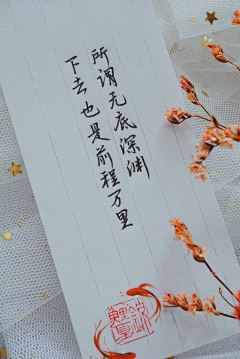 所谓无底深渊
下去也是前程万里